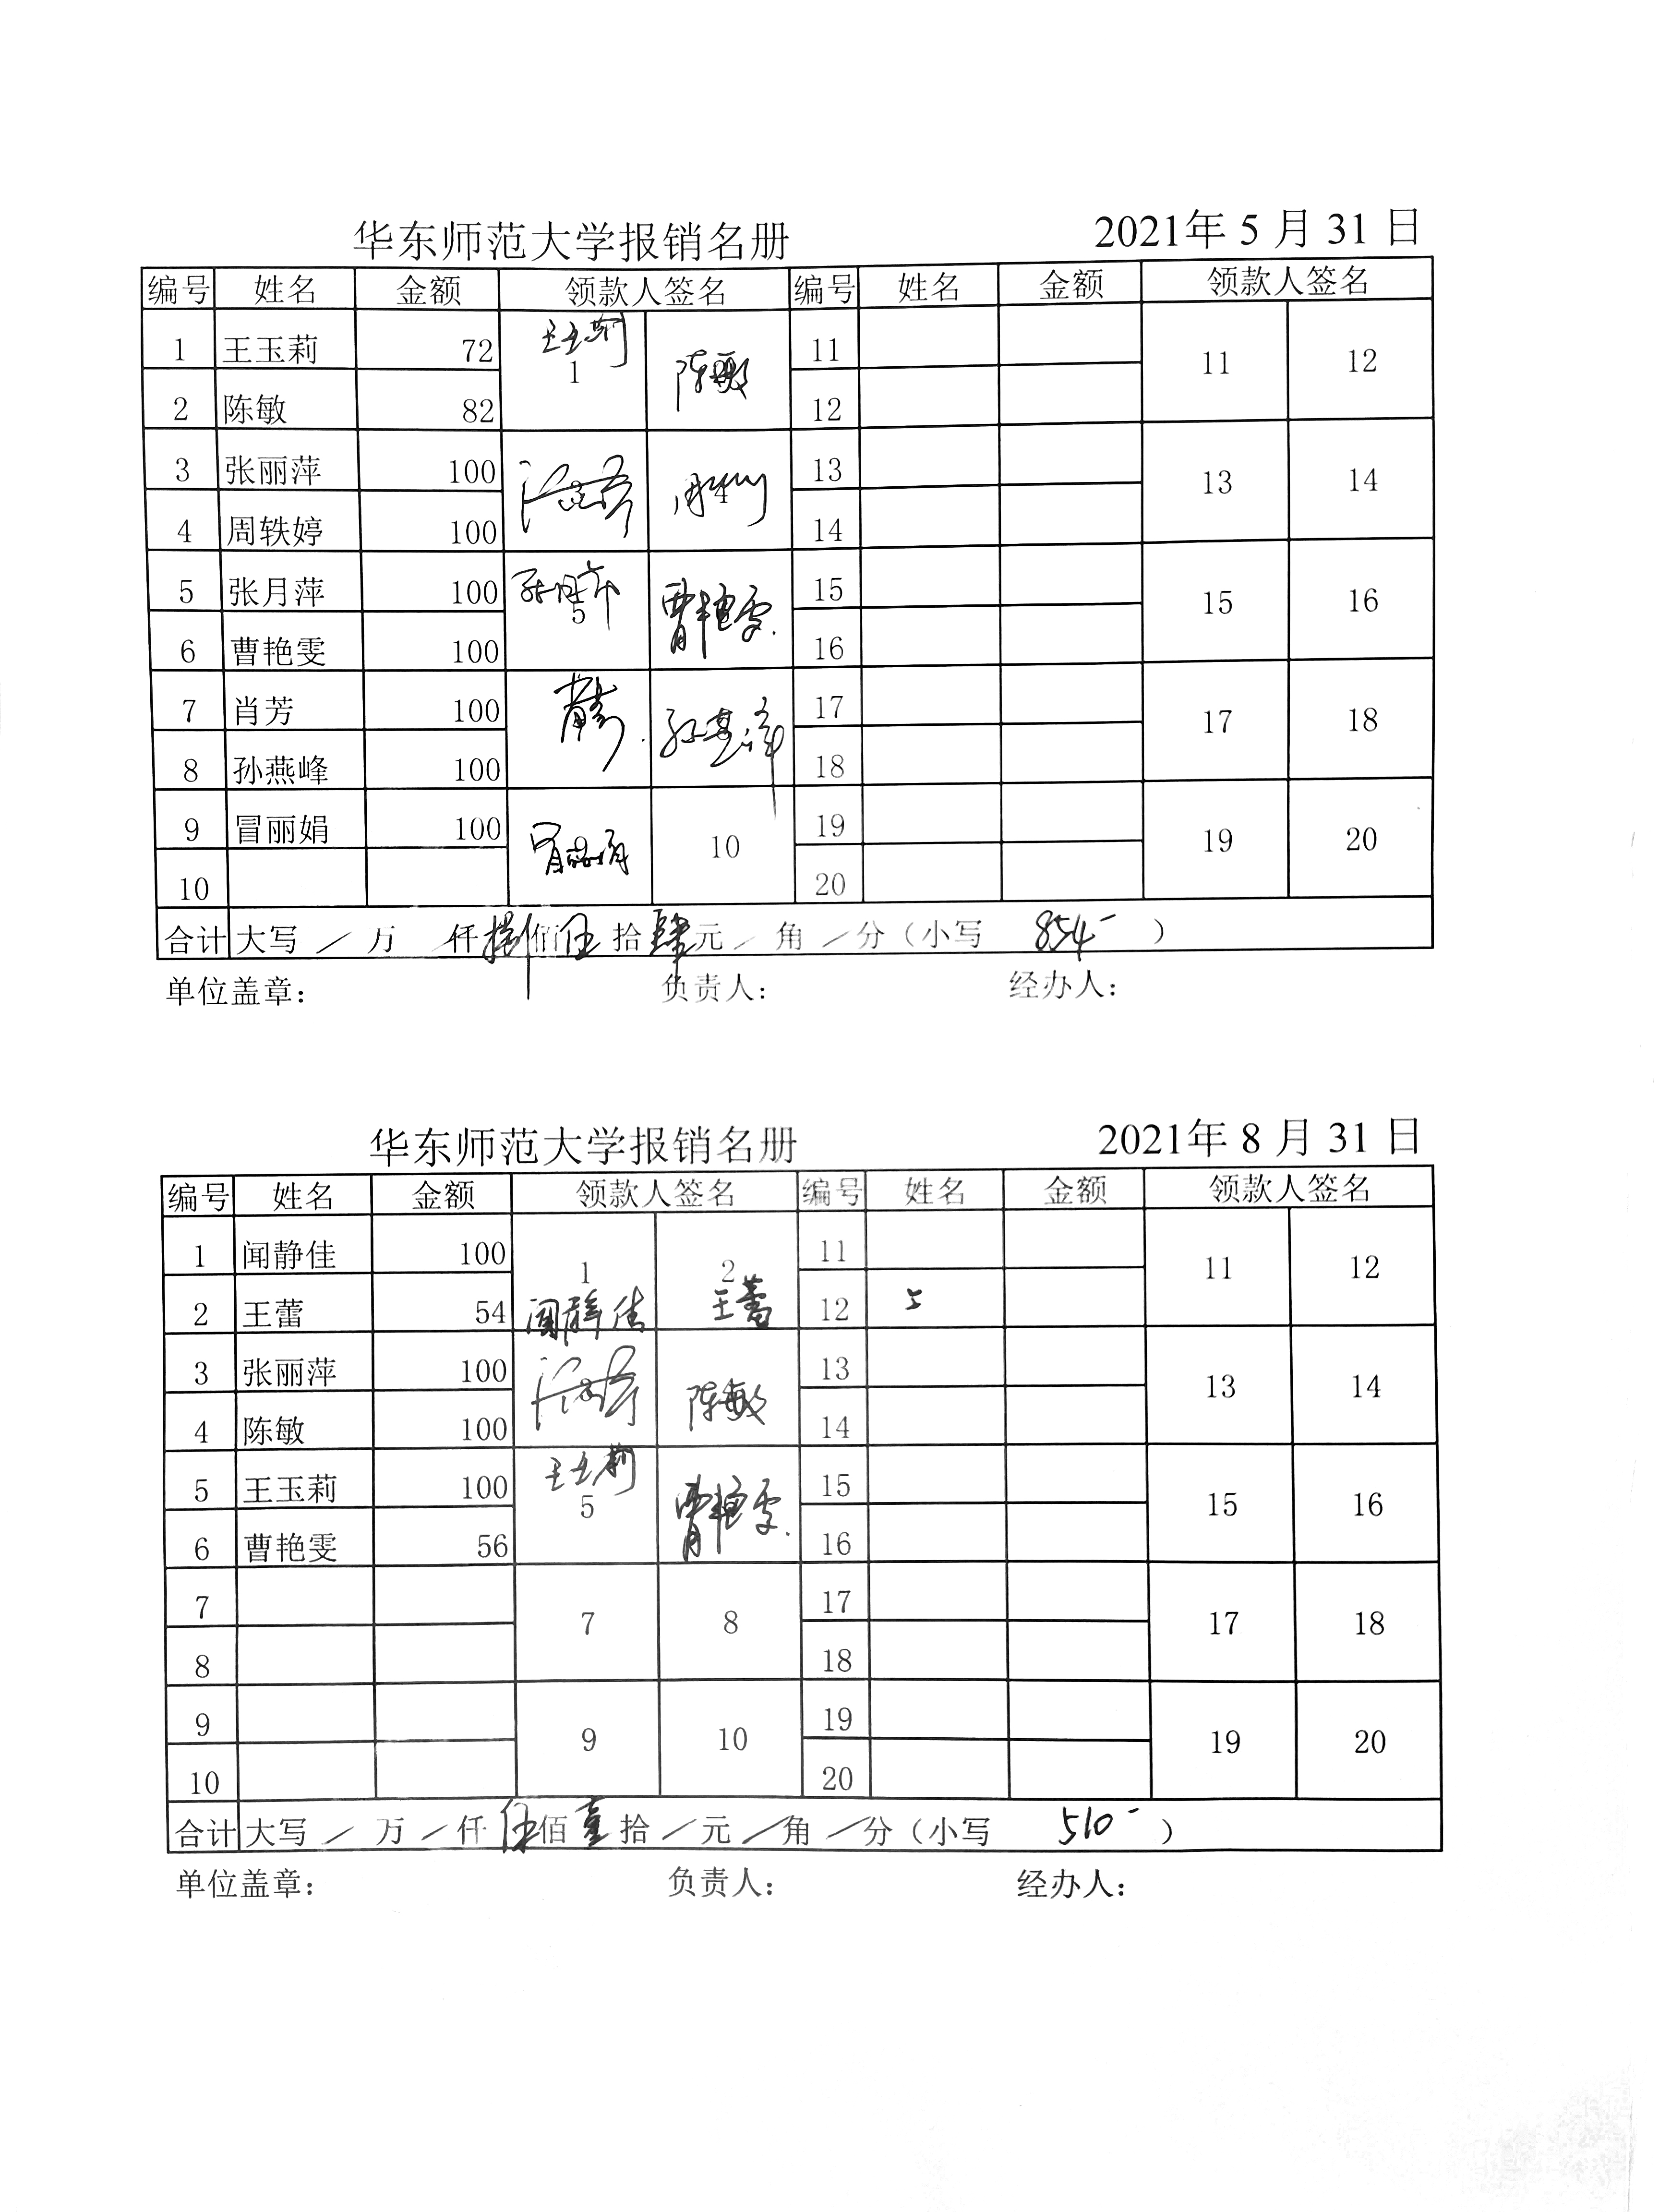 华东师范大学报销名册 2021年 5 月 31 日
编号 姓名 金额 领款人签名 编号 姓名 金额 领款人签名
1 王玉莉 72 王玉莉 1 陈敏 11 11 12
2 陈敏 82 12
3 张丽萍 100 13 13 14
4 周轶婷 100 14
5 张月萍 100 张月萍 5 曹艳雯 15 15 16
6 曹艳雯 100 16
7 肖芳 100 肖芳 孙燕峰 17 17 18
8 孙燕峰 100 18
9 冒丽娟 100 冒丽娟 10 19 19 20
10 20
合计 大写 / 万 / 仟 捌 佰 伍 拾 肆 元 / 角 / 分（小写 854- ）
单位盖章： 负责人： 经办人：
华东师范大学报销名册 2021年 8 月 31 日
编号 姓名 金额 领款人签名 编号 姓名 金额 领款人签名
1 闻静佳 100 1 闻静佳 2 王蕾 11 11 12
2 王蕾 54 12
3 张丽萍 100 陈敏 13 13 14
4 陈敏 100 14
5 王玉莉 100 王玉莉 5 曹艳雯 15 15 16
6 曹艳雯 56 16
7 7 8 17 17 18
8 18
9 9 10 19 19 20
10 20
合计 大写 / 万 / 仟 伍 佰 壹 拾 / 元 / 角 / 分（小写 510- ）
单位盖章： 负责人： 经办人：